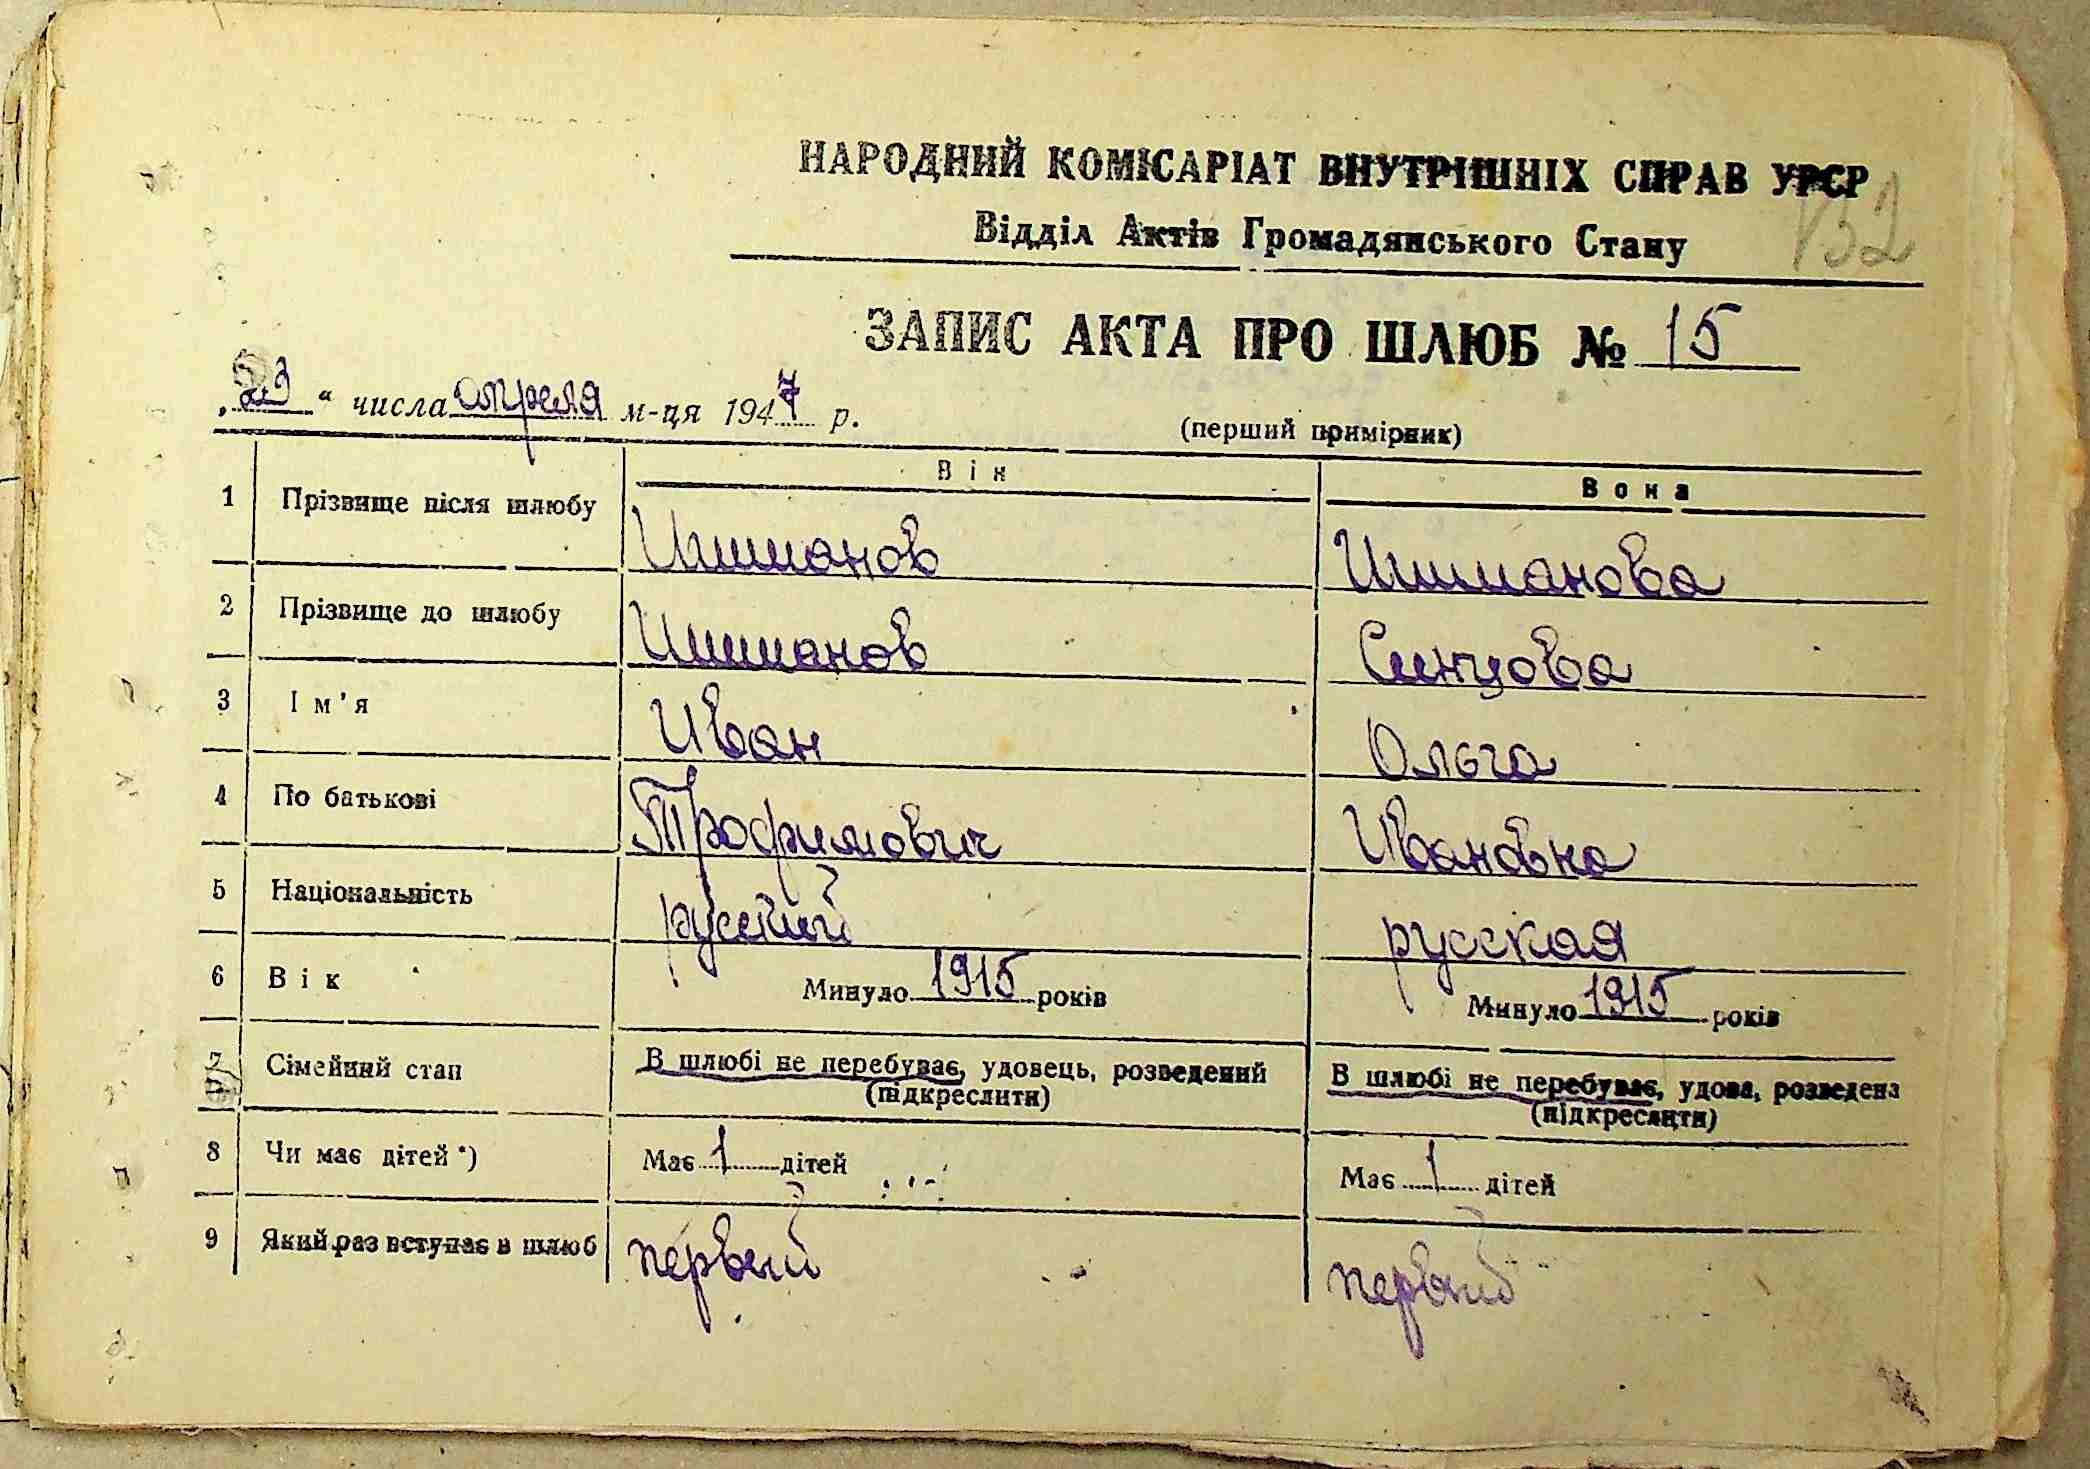 НАРОДНИЙ КОМІСАРІАТ ВНУТРІШНІХ СПРАВ УРСР
Відділ Актів Громадянського Стану
132
ЗАПИС АКТА ПРО ШЛЮБ № 15
„23“ числа апреля м-ця 1947 р.
(перший примірник)
Він Вона
1 Прізвище після шлюбу Ишманов Ишманова
2 Прізвище до шлюбу Ишманов Синцова
3 Ім'я Иван Ольга
4 По батькові Трофимович Ивановна
5 Національність русский русская
6 Вік Минуло 1915 років Минуло 1915 років
7 Сімейний стан В шлюбі не перебуває, удовець, розведений В шлюбі не перебуває, удова, розведена
(підкреслити) (підкреслити)
8 Чи має дітей *) Має 1 дітей Має 1 дітей
9 Який раз вступає в шлюб первый первый